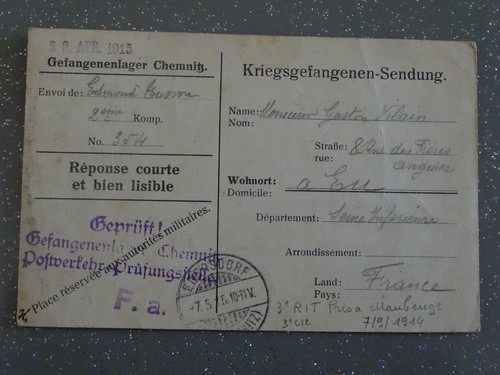 2 8. APR. 1915
Gefangenenlager Chemnitz.
Envoi de: Edmond
2eme Komp.
No. 354
Réponse courte
et bien lisible
Geprüft!
Gefangenenlager Chemnitz
Postverkehr-Prüfungsstelle
F. a.
Place réservée aux autorités militaires.
Kriegsgefangenen-Sendung.
Name: Monsieur Gaston Vilain
Nom:
Straße: 8 Rue des Frères
rue: Anguier
Wohnort: a Eu
Domicile:
Département: Seine Inferieure
Arrondissement:
Land: France
Pays:
EBERSDORF
-7.5.15.10-11V.
3e RIT Pris a Maubeuge
3e cie 7/9/1914